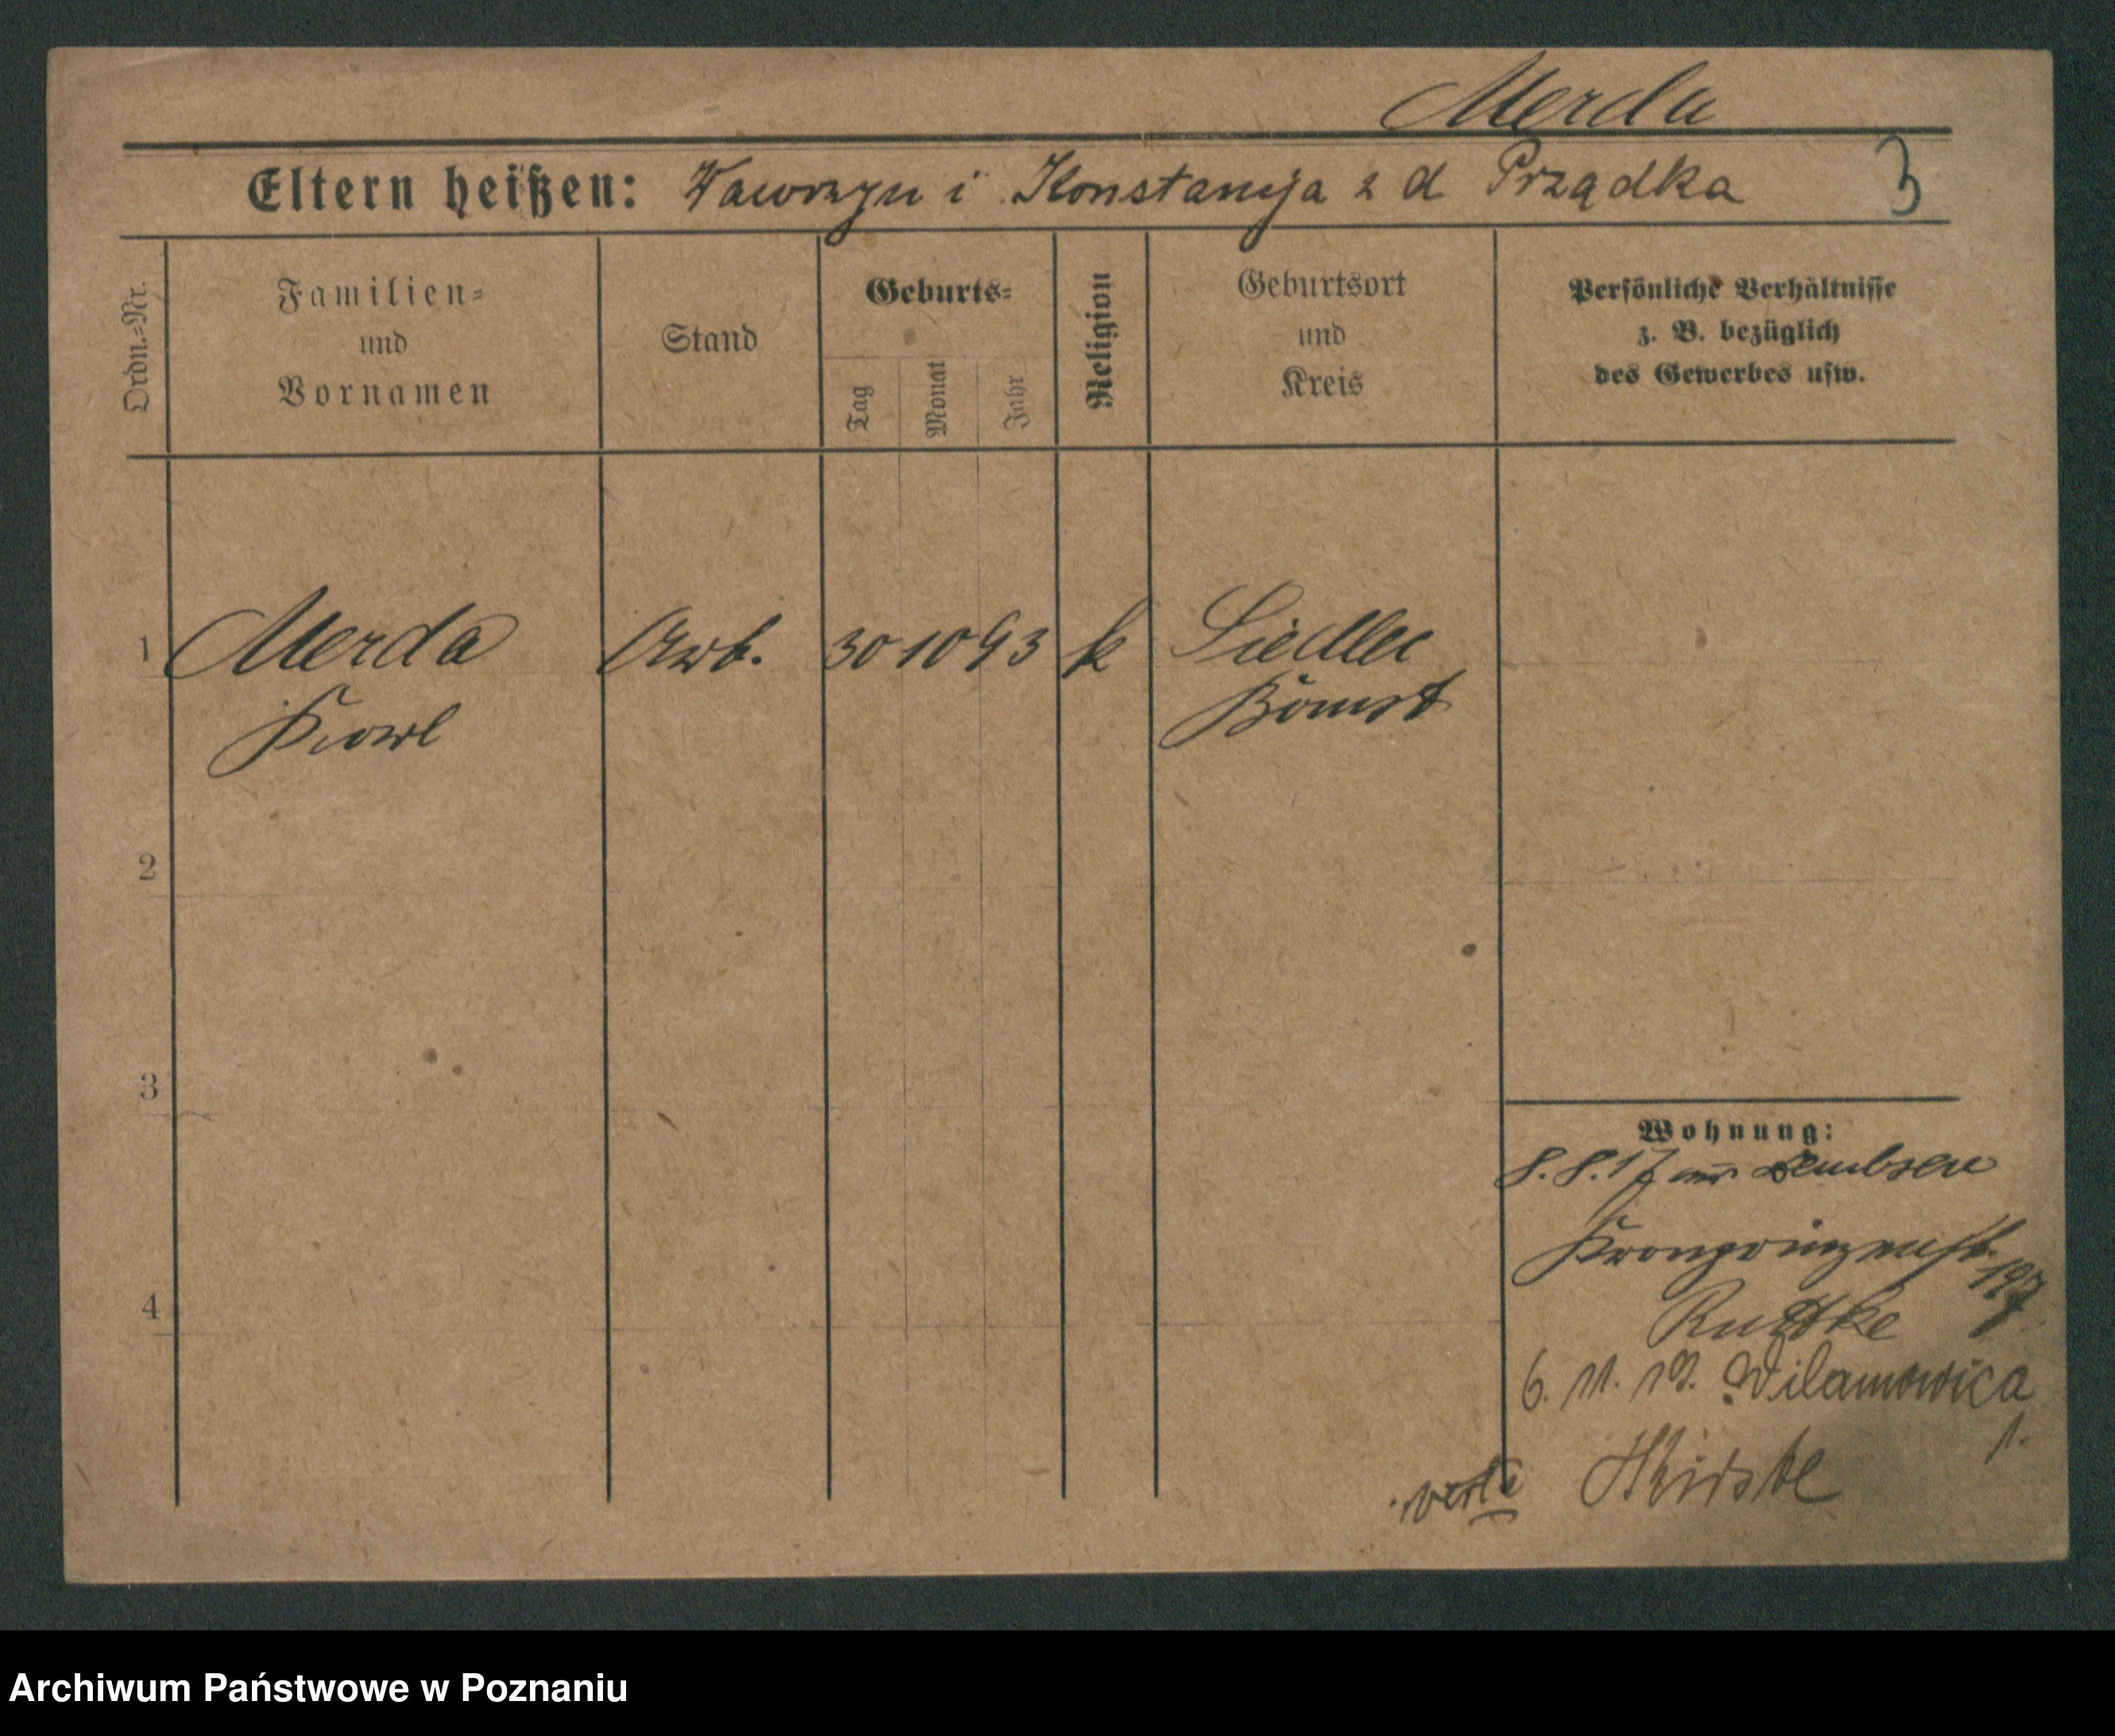 Merda
Eltern heißen: Wawrzyn i Konstancja z d Prządka 3
Ordn.-Nr.
Familien-
und
Vornamen
Stand
Geburts-
Tag
Monat
Jahr
Religion
Geburtsort
und
Kreis
Persönliche Verhältnisse
z. B. bezüglich
des Gewerbes usw.
1 Merda Arb. 30 10 93 k Siedlec
Karl Bomst
2
3
4
Wohnung:
8.8.17 Dembsen
Kronprinzenst. 107
Ruttke
6. 11. 19. Wilamowica
1.